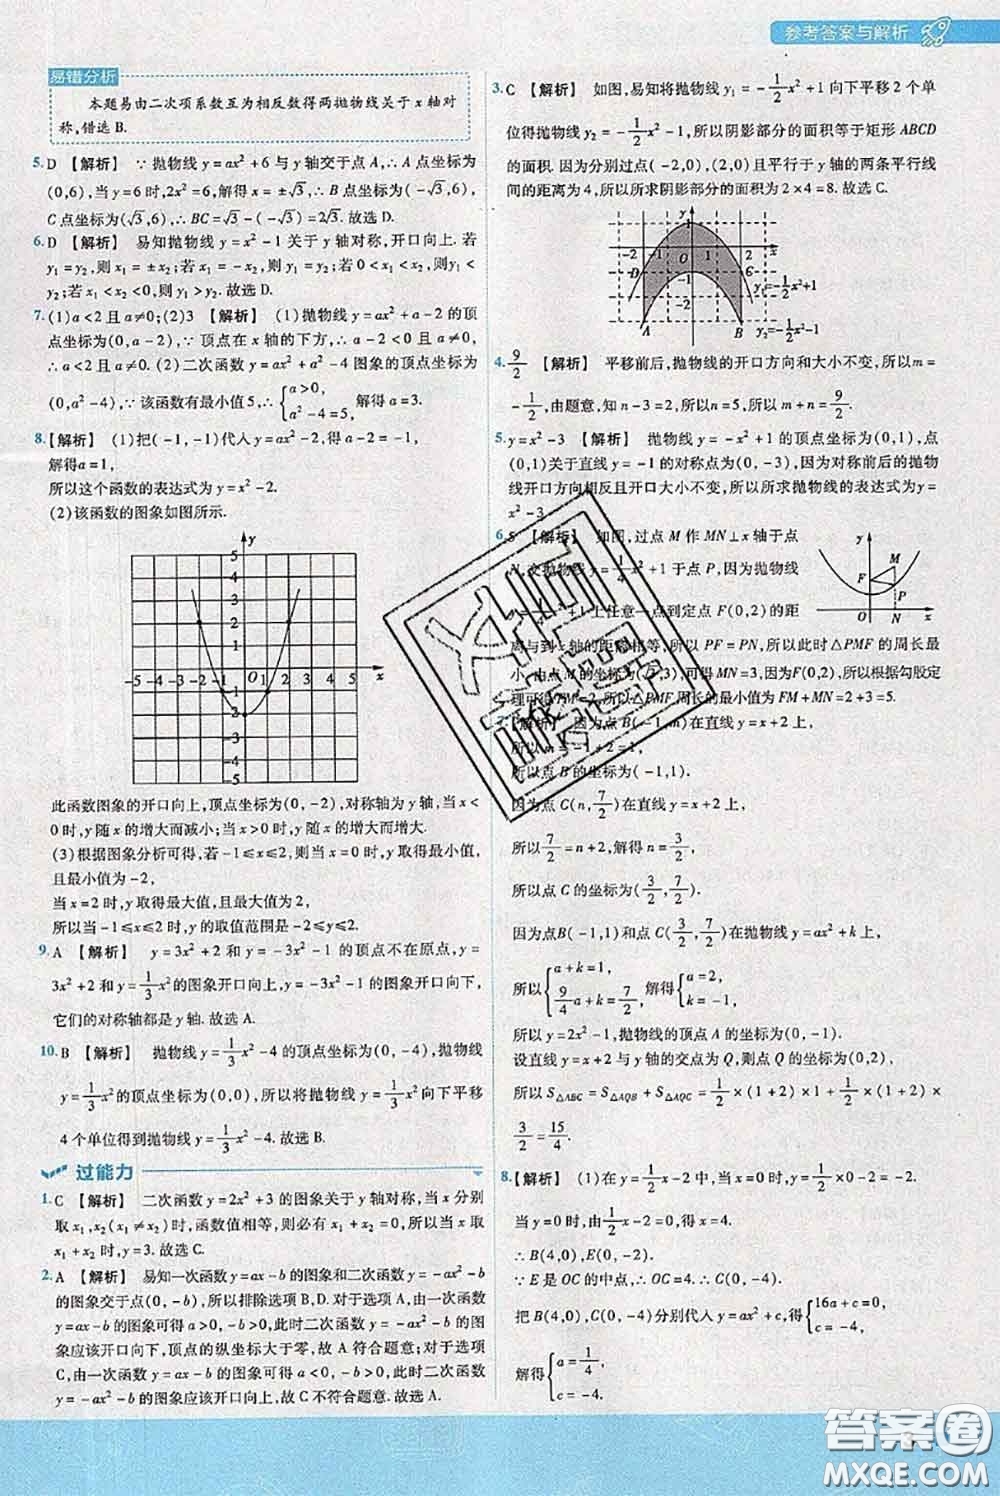 参考答案与解析
易错分析
本题易由二次项系数互为相反数得两抛物线关于 x 轴对
称,错选 B.
5. D 【解析】 ∵ 抛物线 y=ax²+6 与 y 轴交于点 A,∴ A 点坐标为
(0,6),当 y=6 时,2x²=6,解得 x=±√3,∴ B 点坐标为(-√3,6),
C 点坐标为(√3,6),∴ BC=√3-(-√3)=2√3.故选 D.
6. D 【解析】 易知抛物线 y=x²-1 关于 y 轴对称,开口向上. 若
y₁=y₂,则 x₁=±x₂;若 x₁=-x₂,则 y₁=y₂;若 0<x₁<x₂,则y₁<
y₂;若 x₁<x₂<0,则 y₁>y₂.故选 D.
7. (1)a<2 且 a≠0;(2)3 【解析】 (1)抛物线 y=ax²+a-2 的顶
点坐标为(0,a-2),∵ 顶点在 x 轴的下方,∴ a-2<0 且 a≠0,
∴ a<2 且 a≠0. (2)二次函数 y=ax²+a²-4 图象的顶点坐标为
(0,a²-4),∵ 该函数有最小值 5,∴ {a>0, a²-4=5, 解得 a=3.
8. 【解析】 (1)把(-1,-1)代入 y=ax²-2,得 a-2=-1,
解得a=1,
所以这个函数的表达式为 y=x²-2.
(2)该函数的图象如图所示.
y
5
4
3
2
1
-5-4-3-2-1 O 1 2 3 4 5 x
-1
-2
-3
-4
-5
此函数图象的开口向上,顶点坐标为(0,-2),对称轴为 y 轴,当 x<
0 时,y 随 x 的增大而减小;当 x>0 时,y 随 x 的增大而增大.
(3)根据图象分析可得,若-1≤x≤2,则当 x=0 时,y 取得最小值,
且最小值为-2,
当 x=2 时,y 取得最大值,且最大值为 2,
所以当-1≤x≤2 时,y 的取值范围是-2≤y≤2.
9. A 【解析】 y=3x²+2 和 y=-3x²-1 的顶点不在原点,y=
3x²+2 和 y=1/3x²的图象开口向上,y=-3x²-1 的图象开口向下,
它们的对称轴都是 y 轴.故选 A.
10. B 【解析】 抛物线 y=1/3x²-4 的顶点坐标为(0,-4),抛物线
y=1/3x²的顶点坐标为(0,0),所以将抛物线 y=1/3x²向下平移
4 个单位得到抛物线 y=1/3x²-4.故选 B.
过能力
1. C 【解析】 二次函数 y=2x²+3 的图象关于 y 轴对称,当 x 分别
取 x₁,x₂(x₁≠x₂)时,函数值相等,则必有 x₁+x₂=0,所以当 x 取
x₁+x₂时,y=3.故选 C.
2. A 【解析】 易知一次函数 y=ax-b 的图象和二次函数 y=-ax²-b
的图象交于点(0,-b),所以排除选项 B,D.对于选项 A,由一次函数
y=ax-b 的图象可得 a>0,-b>0,此时二次函数 y=-ax²-b 的图
象应该开口向下,顶点的纵坐标大于零,故 A 符合题意;对于选项
C,由一次函数 y=ax-b 的图象可得 a<0,-b>0,此时二次函数
y=-ax²-b 的图象应该开口向上,故 C 不符合题意.故选 A.
3. C 【解析】 如图,易知将抛物线 y₁=-1/2x²+1 向下平移 2 个单
位得抛物线 y₂=-1/2x²-1,所以阴影部分的面积等于矩形 ABCD
的面积. 因为分别过点(-2,0),(2,0)且平行于 y 轴的两条平行线
间的距离为 4,所以所求阴影部分的面积为 2×4=8. 故选 C.
y
1
-2 -1 O 1 2 x
D -1 C
-2
A B
y₁=-1/2x²+1
y₂=-1/2x²-1
4. 9/2 【解析】 平移前后,抛物线的开口方向和大小不变,所以 m=
-1/2,由题意,知 n-3=2,所以n=5,所以 m+n=9/2.
5. y=x²-3 【解析】 抛物线 y=-x²+1 的顶点坐标为(0,1),点
(0,1)关于直线 y=-1 的对称点为(0,-3),因为对称前后的抛物
线开口方向相反且开口大小不变,所以所求抛物线的表达式为 y=
x²-3.
6. 5 【解析】 如图,过点 M 作 MN⊥x 轴于点
N,交抛物线 y=1/4x²+1 于点 P,因为抛物线
y=1/4x²+1上任意一点到定点 F(0,2)的距
离与到 x 轴的距离相等,所以 PF=PN,所以此时△PMF 的周长最
小. 由点 M 的坐标为(√3,3),可得 MN=3,因为F(0,2),所以根据勾股定
理可得 FM=2,所以△PMF 周长的最小值为 FM+MN=2+3=5.
y
M
F
P
O N x
7. 【解析】 因为点 B(-1,m)在直线 y=x+2 上,
所以 m=-1+2=1,
所以点 B 的坐标为(-1,1).
因为点 C(n,7/2)在直线 y=x+2 上,
所以7/2=n+2,解得 n=3/2,
所以点 C 的坐标为(3/2,7/2).
因为点B(-1,1)和点 C(3/2,7/2)在抛物线 y=ax²+k 上,
所以{a+k=1, 9/4a+k=7/2, 解得{a=2, k=-1.
所以 y=2x²-1,抛物线的顶点 A 的坐标为(0,-1).
设直线 y=x+2 与 y 轴的交点为 Q,则点 Q 的坐标为(0,2),
所以 S△ABC=S△AQB+S△AQC=1/2×(1+2)×1+1/2×(1+2)×
3/2=15/4.
8. 【解析】 (1)在 y=1/2x-2 中,当 x=0 时,y=-2,
当 y=0 时,由1/2x-2=0,得 x=4.
∴ B(4,0),E(0,-2).
∵ E 是 OC 的中点,∴ OC=4,∴ C(0,-4).
把 B(4,0),C(0,-4)分别代入 y=ax²+c,得{16a+c=0, c=-4,
解得{a=1/4, c=-4.
答案圈
MXQE.COM